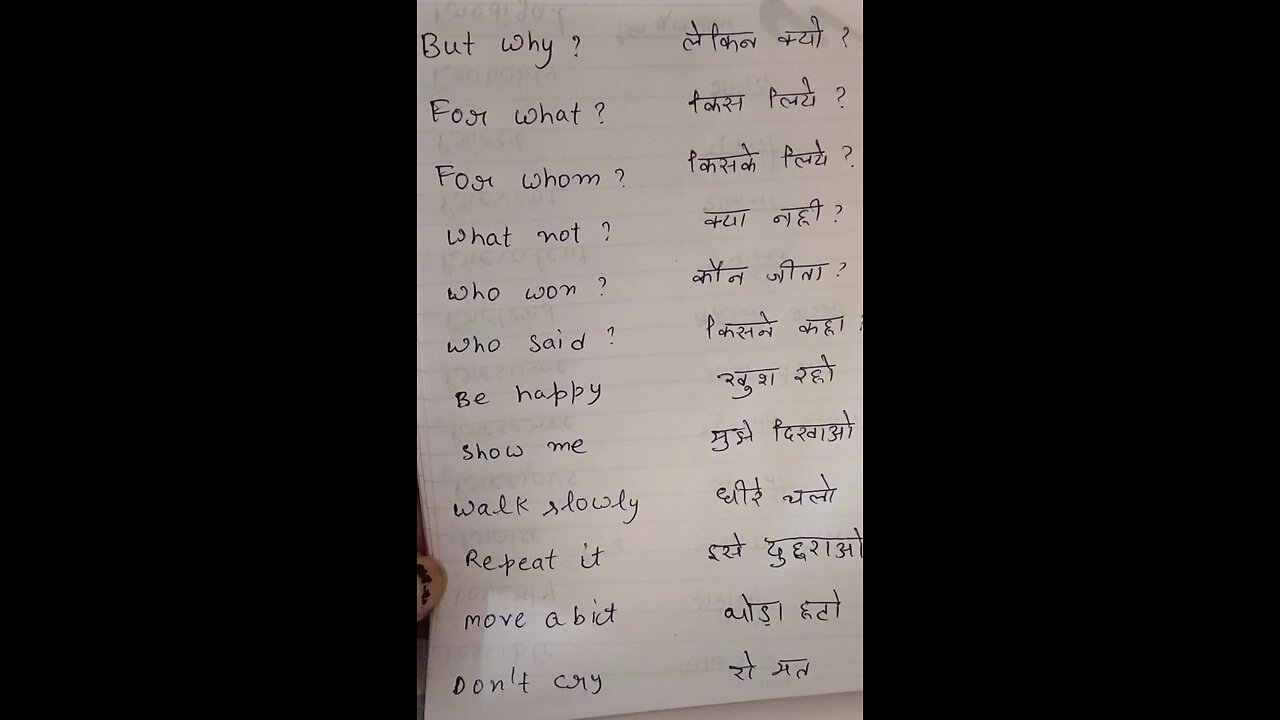 But why ? लेकिन क्यो ?
For what ? किस लिये ?
For whom ? किसके लिये ?
What not ? क्या नही ?
Who won ? कौन जीता ?
Who said ? किसने कहा ?
Be happy खुश रहो
Show me मुझे दिखाओ
Walk slowly धीरे चलो
Repeat it इसे दुहराओ
move a bit थोड़ा हटो
Don't cry रो मत